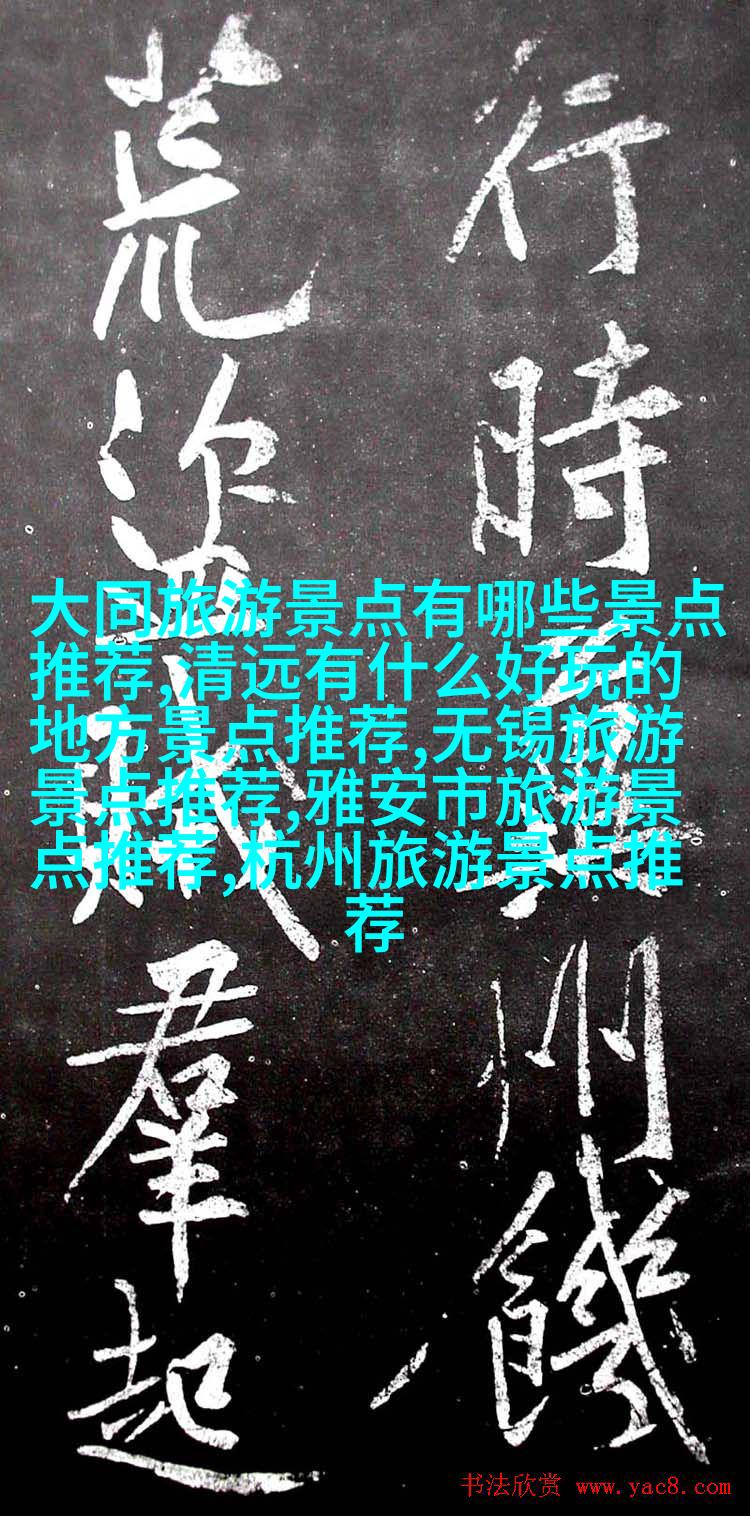 行時州饑
荒盜賊羣起
大同旅游景点有哪些景点
推荐,清远有什么好玩的
地方景点推荐,无锡旅游
景点推荐,雅安市旅游景
点推荐,杭州旅游景点推
荐
书法欣赏 www.yac8.com